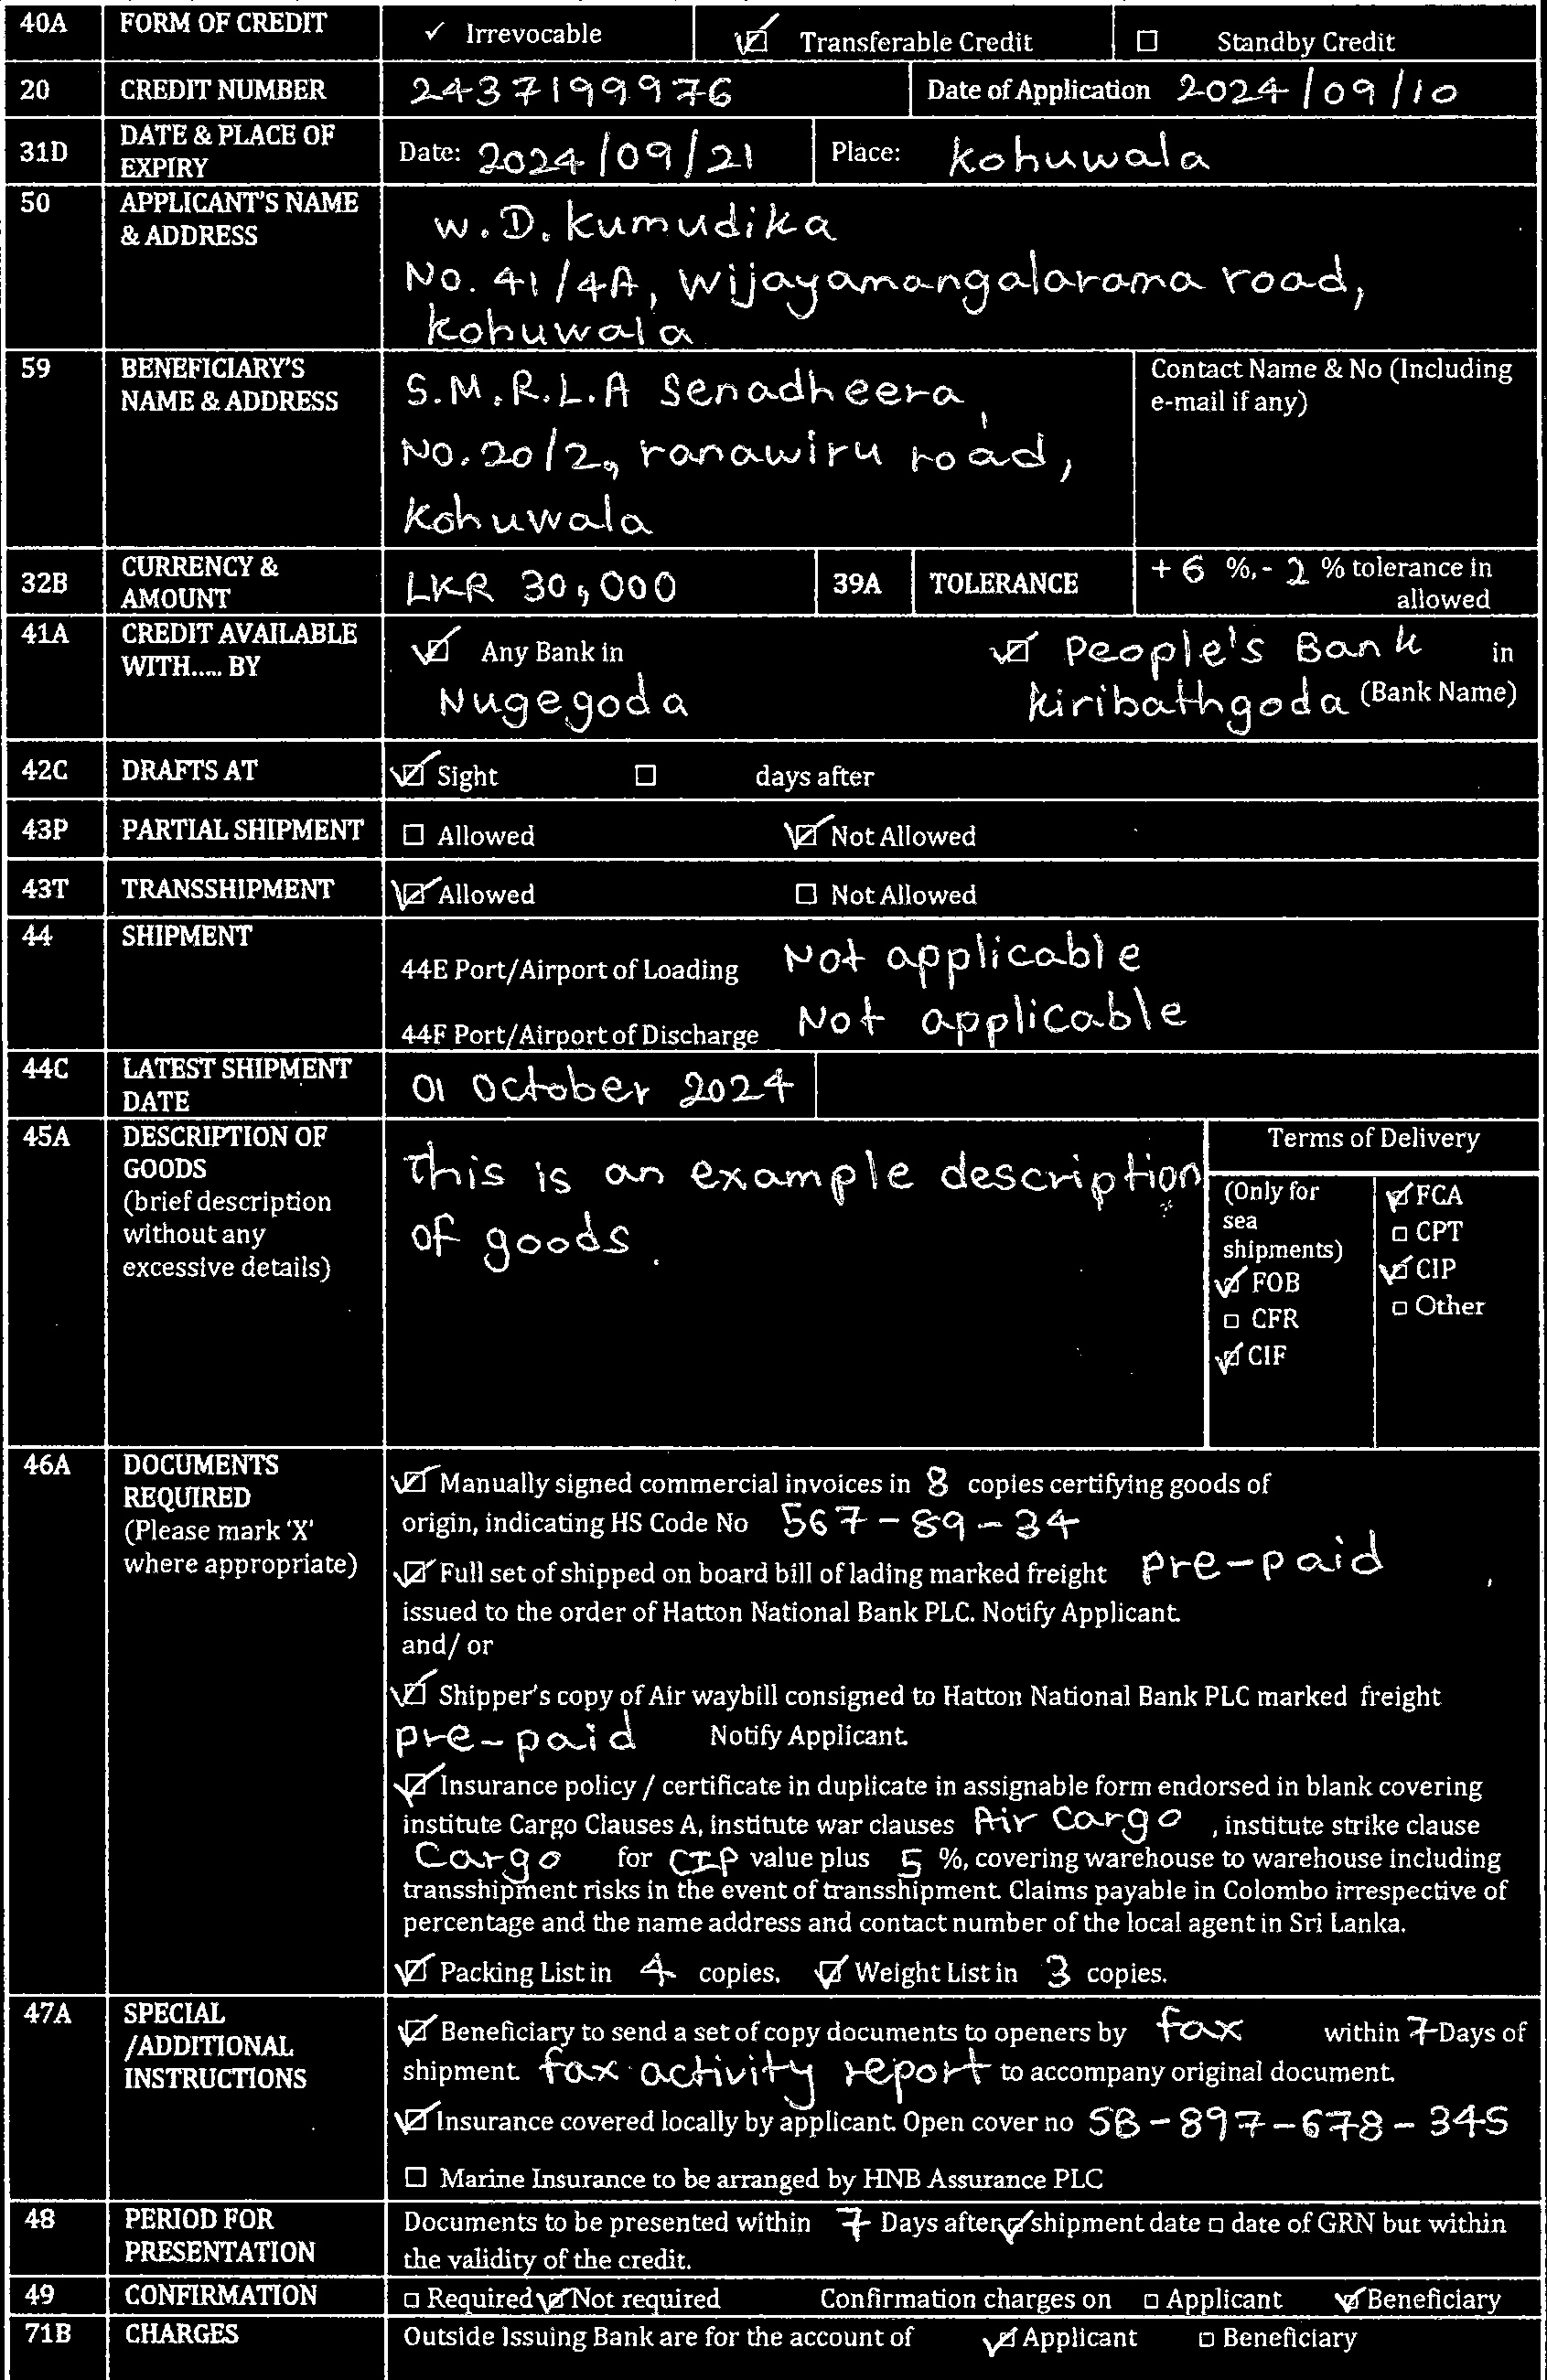 40A FORM OF CREDIT ✓ Irrevocable ☑ Transferable Credit ☐ Standby Credit
20 CREDIT NUMBER 2437199976 Date of Application 2024/09/10
31D DATE & PLACE OF EXPIRY Date: 2024/09/21 Place: Kohuwala
50 APPLICANT'S NAME & ADDRESS
W.D. Kumudika
No. 41/4A, Wijayamangalarama road,
Kohuwala
59 BENEFICIARY'S NAME & ADDRESS
S.M.R.L.A Senadheera,
No.20/2, ranawiru road,
Kohuwala
Contact Name & No (Including
e-mail if any)
32B CURRENCY & AMOUNT LKR 30,000 39A TOLERANCE +6 %,- 2 % tolerance in
allowed
41A CREDIT AVAILABLE WITH..... BY
☑ Any Bank in ☑ People's Bank in
Nugegoda Kiribathgoda (Bank Name)
42C DRAFTS AT ☑ Sight ☐ days after
43P PARTIAL SHIPMENT ☐ Allowed ☑ Not Allowed
43T TRANSSHIPMENT ☑ Allowed ☐ Not Allowed
44 SHIPMENT
44E Port/Airport of Loading Not applicable
44F Port/Airport of Discharge Not applicable
44C LATEST SHIPMENT DATE 01 October 2024
45A DESCRIPTION OF
GOODS
(brief description
without any
excessive details)
This is an example description
of goods.
Terms of Delivery
(Only for
sea
shipments)
☑ FOB
☐ CFR
☑ CIF
☑ FCA
☐ CPT
☑ CIP
☐ Other
46A DOCUMENTS
REQUIRED
(Please mark 'X'
where appropriate)
☑ Manually signed commercial invoices in 8 copies certifying goods of
origin, indicating HS Code No 567-89-34
☑ Full set of shipped on board bill of lading marked freight pre-paid ,
issued to the order of Hatton National Bank PLC. Notify Applicant.
and/ or
☑ Shipper's copy of Air waybill consigned to Hatton National Bank PLC marked freight
pre-paid Notify Applicant.
☑ Insurance policy / certificate in duplicate in assignable form endorsed in blank covering
institute Cargo Clauses A, institute war clauses Air Cargo , institute strike clause
Cargo for CIP value plus 5 %, covering warehouse to warehouse including
transshipment risks in the event of transshipment. Claims payable in Colombo irrespective of
percentage and the name address and contact number of the local agent in Sri Lanka.
☑ Packing List in 4 copies. ☑ Weight List in 3 copies.
47A SPECIAL
/ADDITIONAL
INSTRUCTIONS
☑ Beneficiary to send a set of copy documents to openers by fax within 7 Days of
shipment. fax activity report to accompany original document.
☑ Insurance covered locally by applicant. Open cover no SB-897-678-345
☐ Marine Insurance to be arranged by HNB Assurance PLC
48 PERIOD FOR
PRESENTATION
Documents to be presented within 7 Days after ☑ shipment date ☐ date of GRN but within
the validity of the credit.
49 CONFIRMATION ☐ Required ☑ Not required Confirmation charges on ☐ Applicant ☑ Beneficiary
71B CHARGES Outside Issuing Bank are for the account of ☑ Applicant ☐ Beneficiary